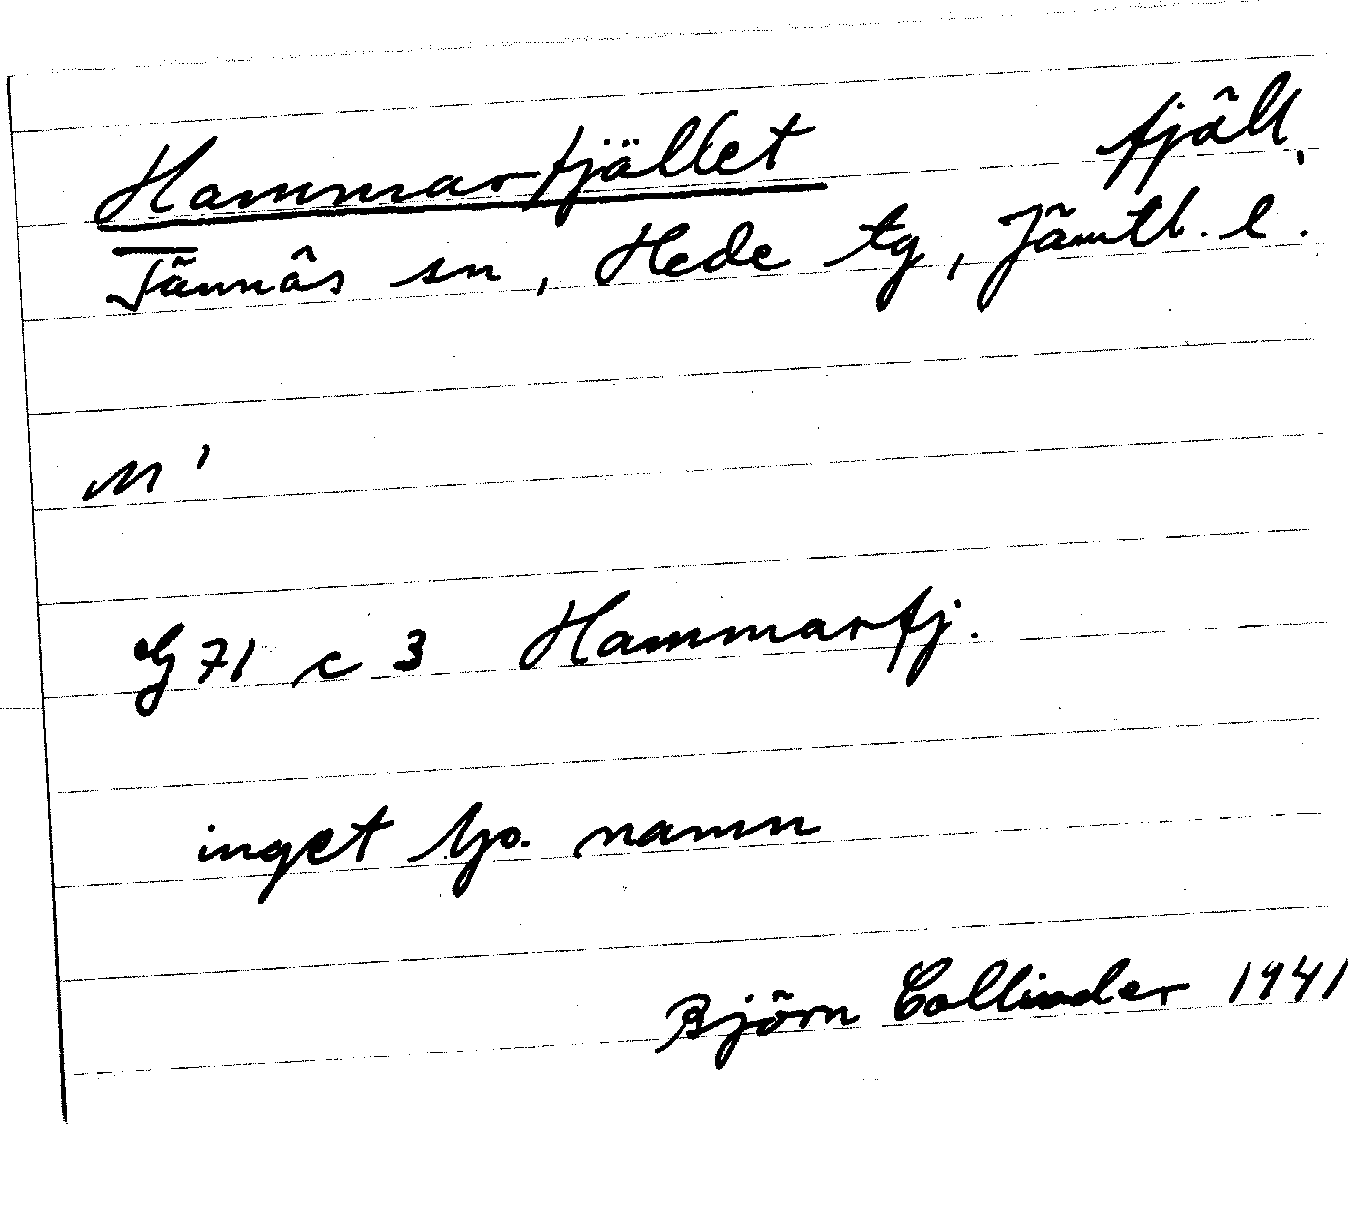 Hammarfjället fjäll,
Tännäs sn, Hede tg, Jämtl. l.
M 1
G 71 c 3 Hammarfj.
inget lp. namn
Björn Collinder 1941